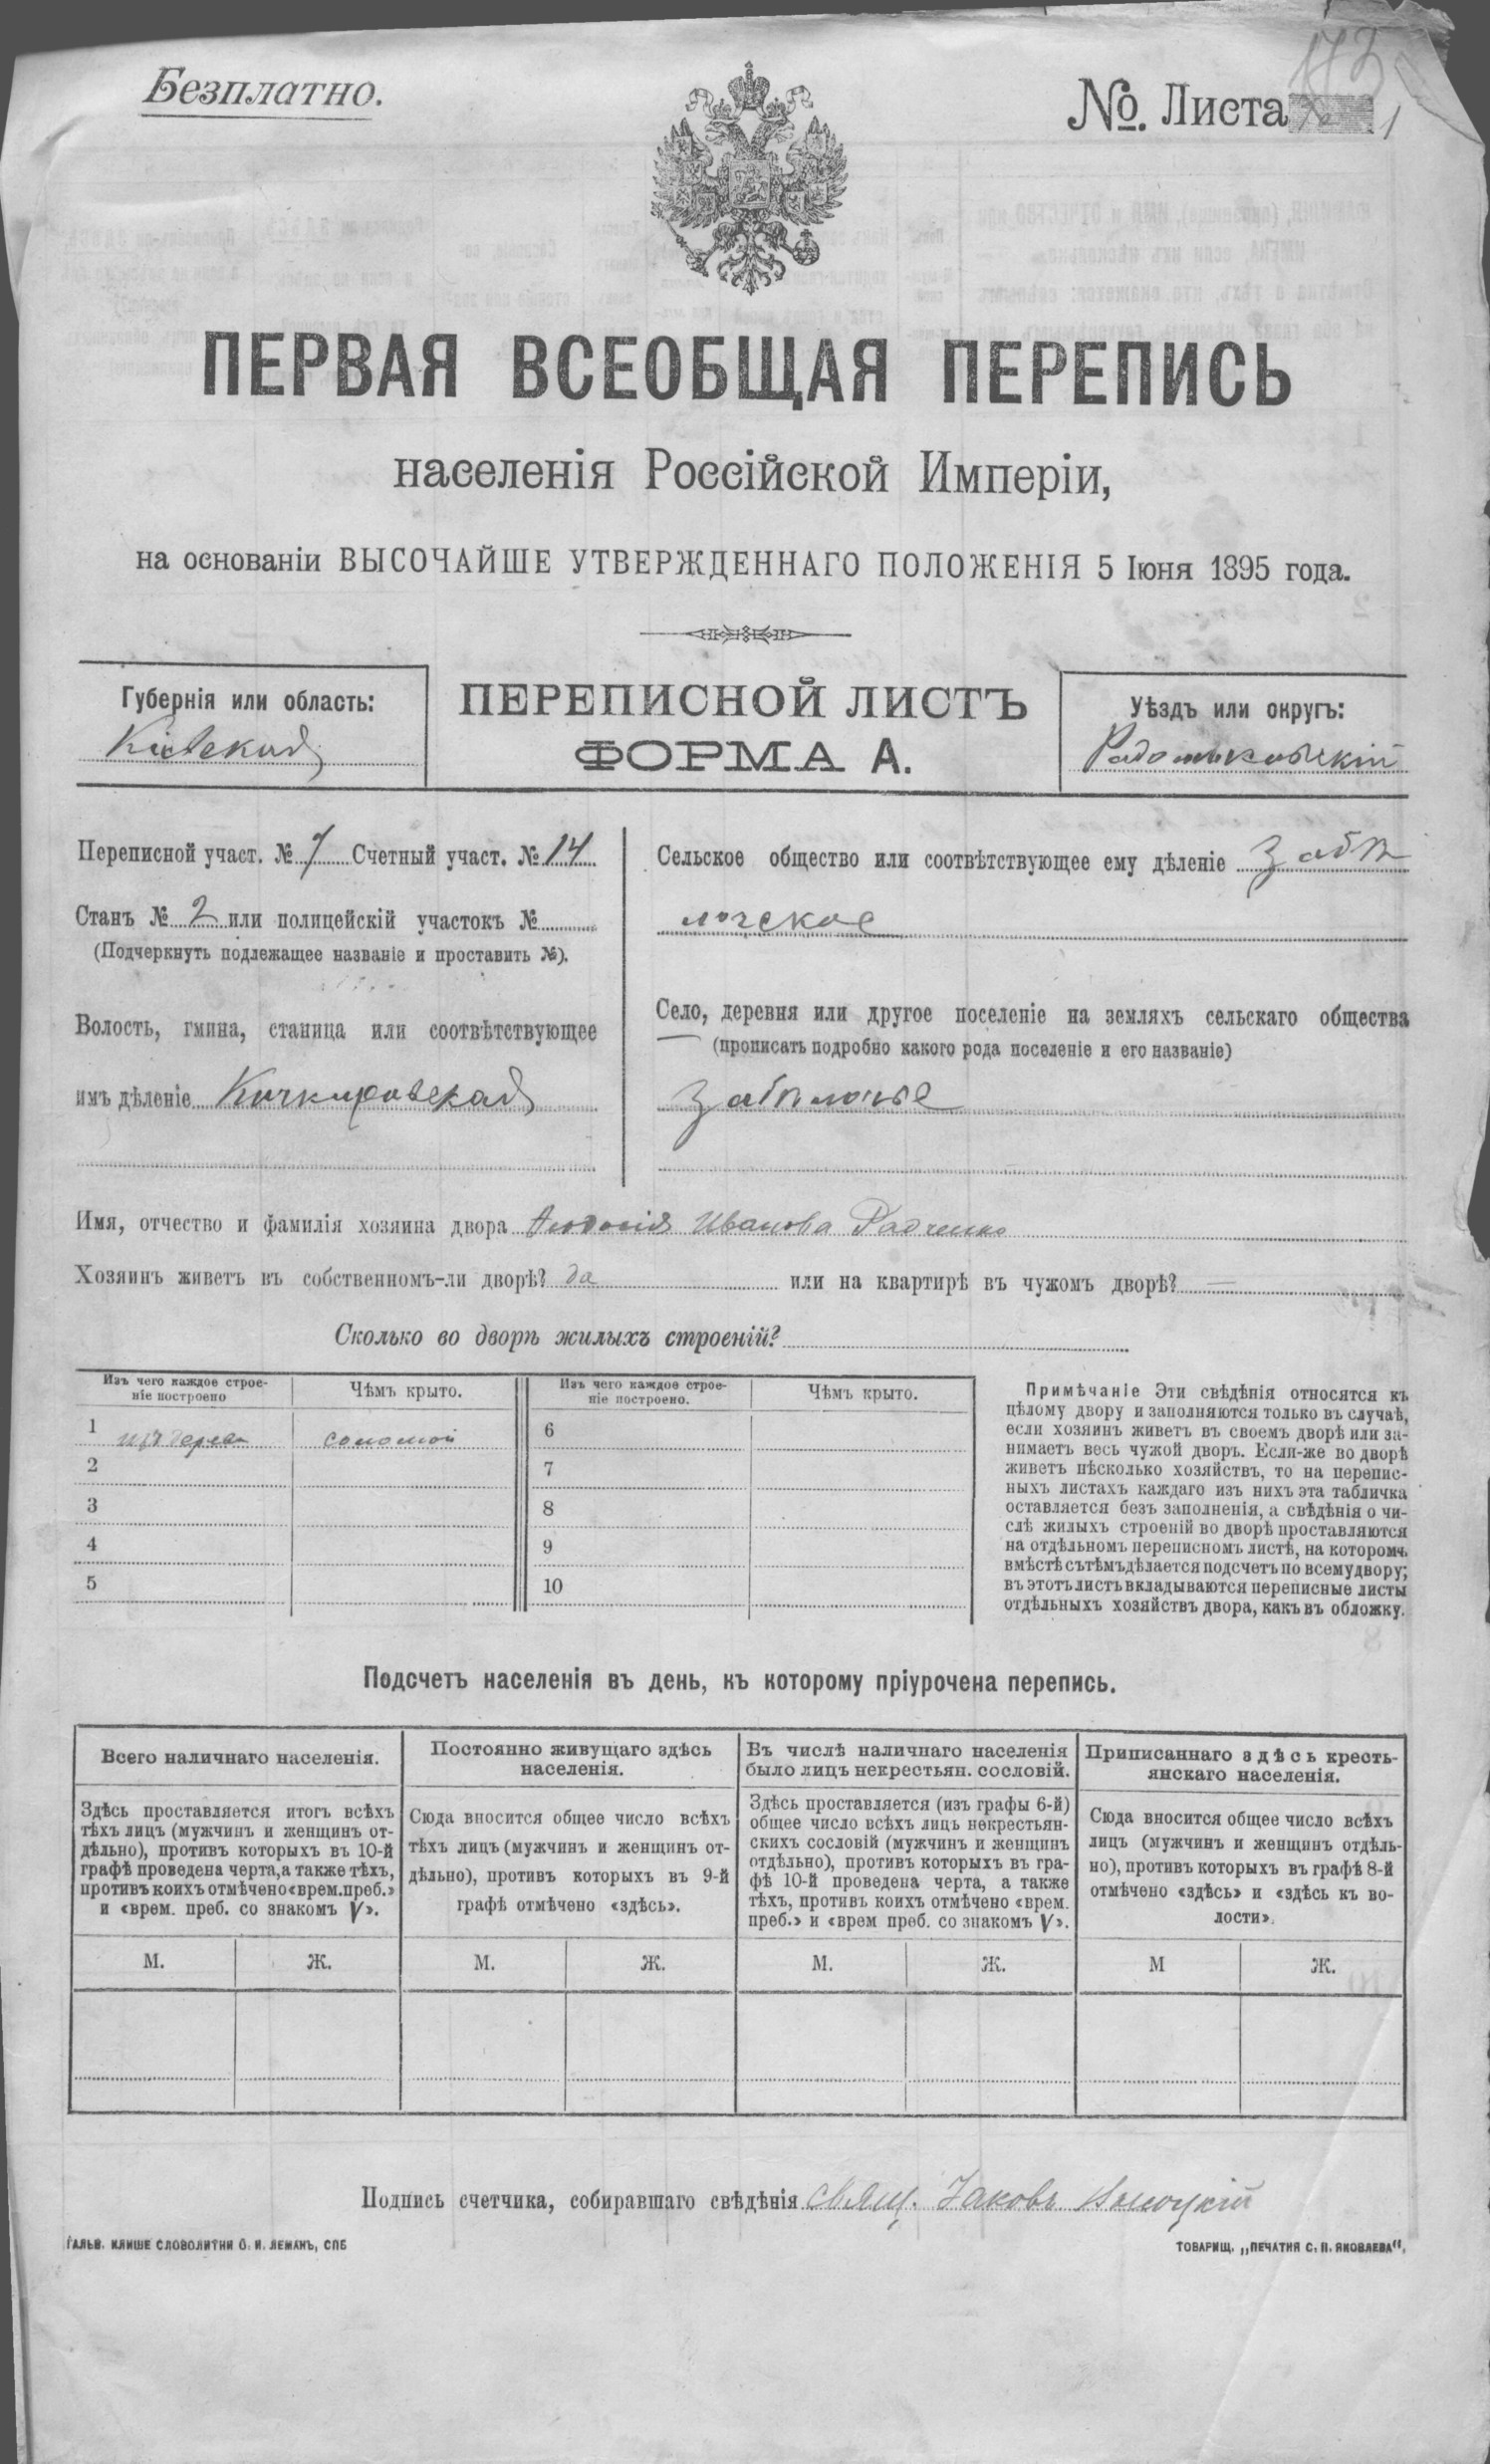 Безплатно.
№. Листа 1
ПЕРВАЯ ВСЕОБЩАЯ ПЕРЕПИСЬ
населенія Россійской Имперіи,
на основаніи ВЫСОЧАЙШЕ УТВЕРЖДЕННАГО ПОЛОЖЕНІЯ 5 Іюня 1895 года.
Губернія или область:
Кіевская
ПЕРЕПИСНОЙ ЛИСТЪ
ФОРМА А.
Уѣздъ или округъ:
Радомысльскій
Переписной участ. № 7 Счетный участ. № 14
Станъ № 2 или полицейскій участокъ №
(Подчеркнуть подлежащее названіе и проставить №).
Волость, гмина, станица или соотвѣтствующее
имъ дѣленіе Кичкировская
Сельское общество или соотвѣтствующее ему дѣленіе Забѣ
лочское
Село, деревня или другое поселеніе на земляхъ сельскаго общества
(прописать подробно какого рода поселеніе и его названіе)
Забѣлочье
Имя, отчество и фамилія хозяина двора Иванова Радченко
Хозяинъ живетъ въ собственномъ-ли дворѣ? да или на квартирѣ въ чужомъ дворѣ? —
Сколько во дворѣ жилыхъ строеній?
Изъ чего каждое строе-
ніе построено
Чѣмъ крыто.
1 изъ дерева соломой
2
3
4
5
Изъ чего каждое строе-
ніе построено.
Чѣмъ крыто.
6
7
8
9
10
Примѣчаніе Эти свѣдѣнія относятся къ
цѣлому двору и заполняются только въ случаѣ,
если хозяинъ живетъ въ своемъ дворѣ или за-
нимаетъ весь чужой дворъ. Если-же во дворѣ
живетъ нѣсколько хозяйствъ, то на перепис-
ныхъ листахъ каждаго изъ нихъ эта табличка
оставляется безъ заполненія, а свѣдѣнія о чи-
слѣ жилыхъ строеній во дворѣ проставляются
на отдѣльномъ переписномъ листѣ, на которомъ
вмѣстѣ сътѣмъ дѣлается подсчетъ по всему двору;
въ этотъ листъ вкладываются переписные листы
отдѣльныхъ хозяйствъ двора, какъ въ обложку.
Подсчетъ населенія въ день, къ которому пріурочена перепись.
Всего наличнаго населенія.
Здѣсь проставляется итогъ всѣхъ
тѣхъ лицъ (мужчинъ и женщинъ от-
дѣльно), противъ которыхъ въ 10-й
графѣ проведена черта, а также тѣхъ,
противъ коихъ отмѣчено «врем. преб.»
и «врем. преб. со знакомъ V».
М. Ж.
Постоянно живущаго здѣсь
населенія.
Сюда вносится общее число всѣхъ
тѣхъ лицъ (мужчинъ и женщинъ от-
дѣльно), противъ которыхъ въ 9-й
графѣ отмѣчено «здѣсь».
М. Ж.
Въ числѣ наличнаго населенія
было лицъ некрестьян. сословій.
Здѣсь проставляется (изъ графы 6-й)
общее число всѣхъ лицъ некрестьян-
скихъ сословій (мужчинъ и женщинъ
отдѣльно), противъ которыхъ въ гра-
фѣ 10-й проведена черта, а также
тѣхъ, противъ коихъ отмѣчено «врем.
преб.» и «врем преб. со знакомъ V».
М. Ж.
Приписаннаго здѣсь кресть-
янскаго населенія.
Сюда вносится общее число всѣхъ
лицъ (мужчинъ и женщинъ отдѣль-
но), противъ которыхъ въ графѣ 8-й
отмѣчено «здѣсь» и «здѣсь къ во-
лости».
М Ж.
Подпись счетчика, собиравшаго свѣдѣнія свящ. Іаковъ
ГАЛЬВ. КЛИШЕ СЛОВОЛИТНИ О. И. ЛЕМАНЪ, СПБ
ТОВАРИЩ. „ПЕЧАТНЯ С. П. ЯКОВЛЕВА“.